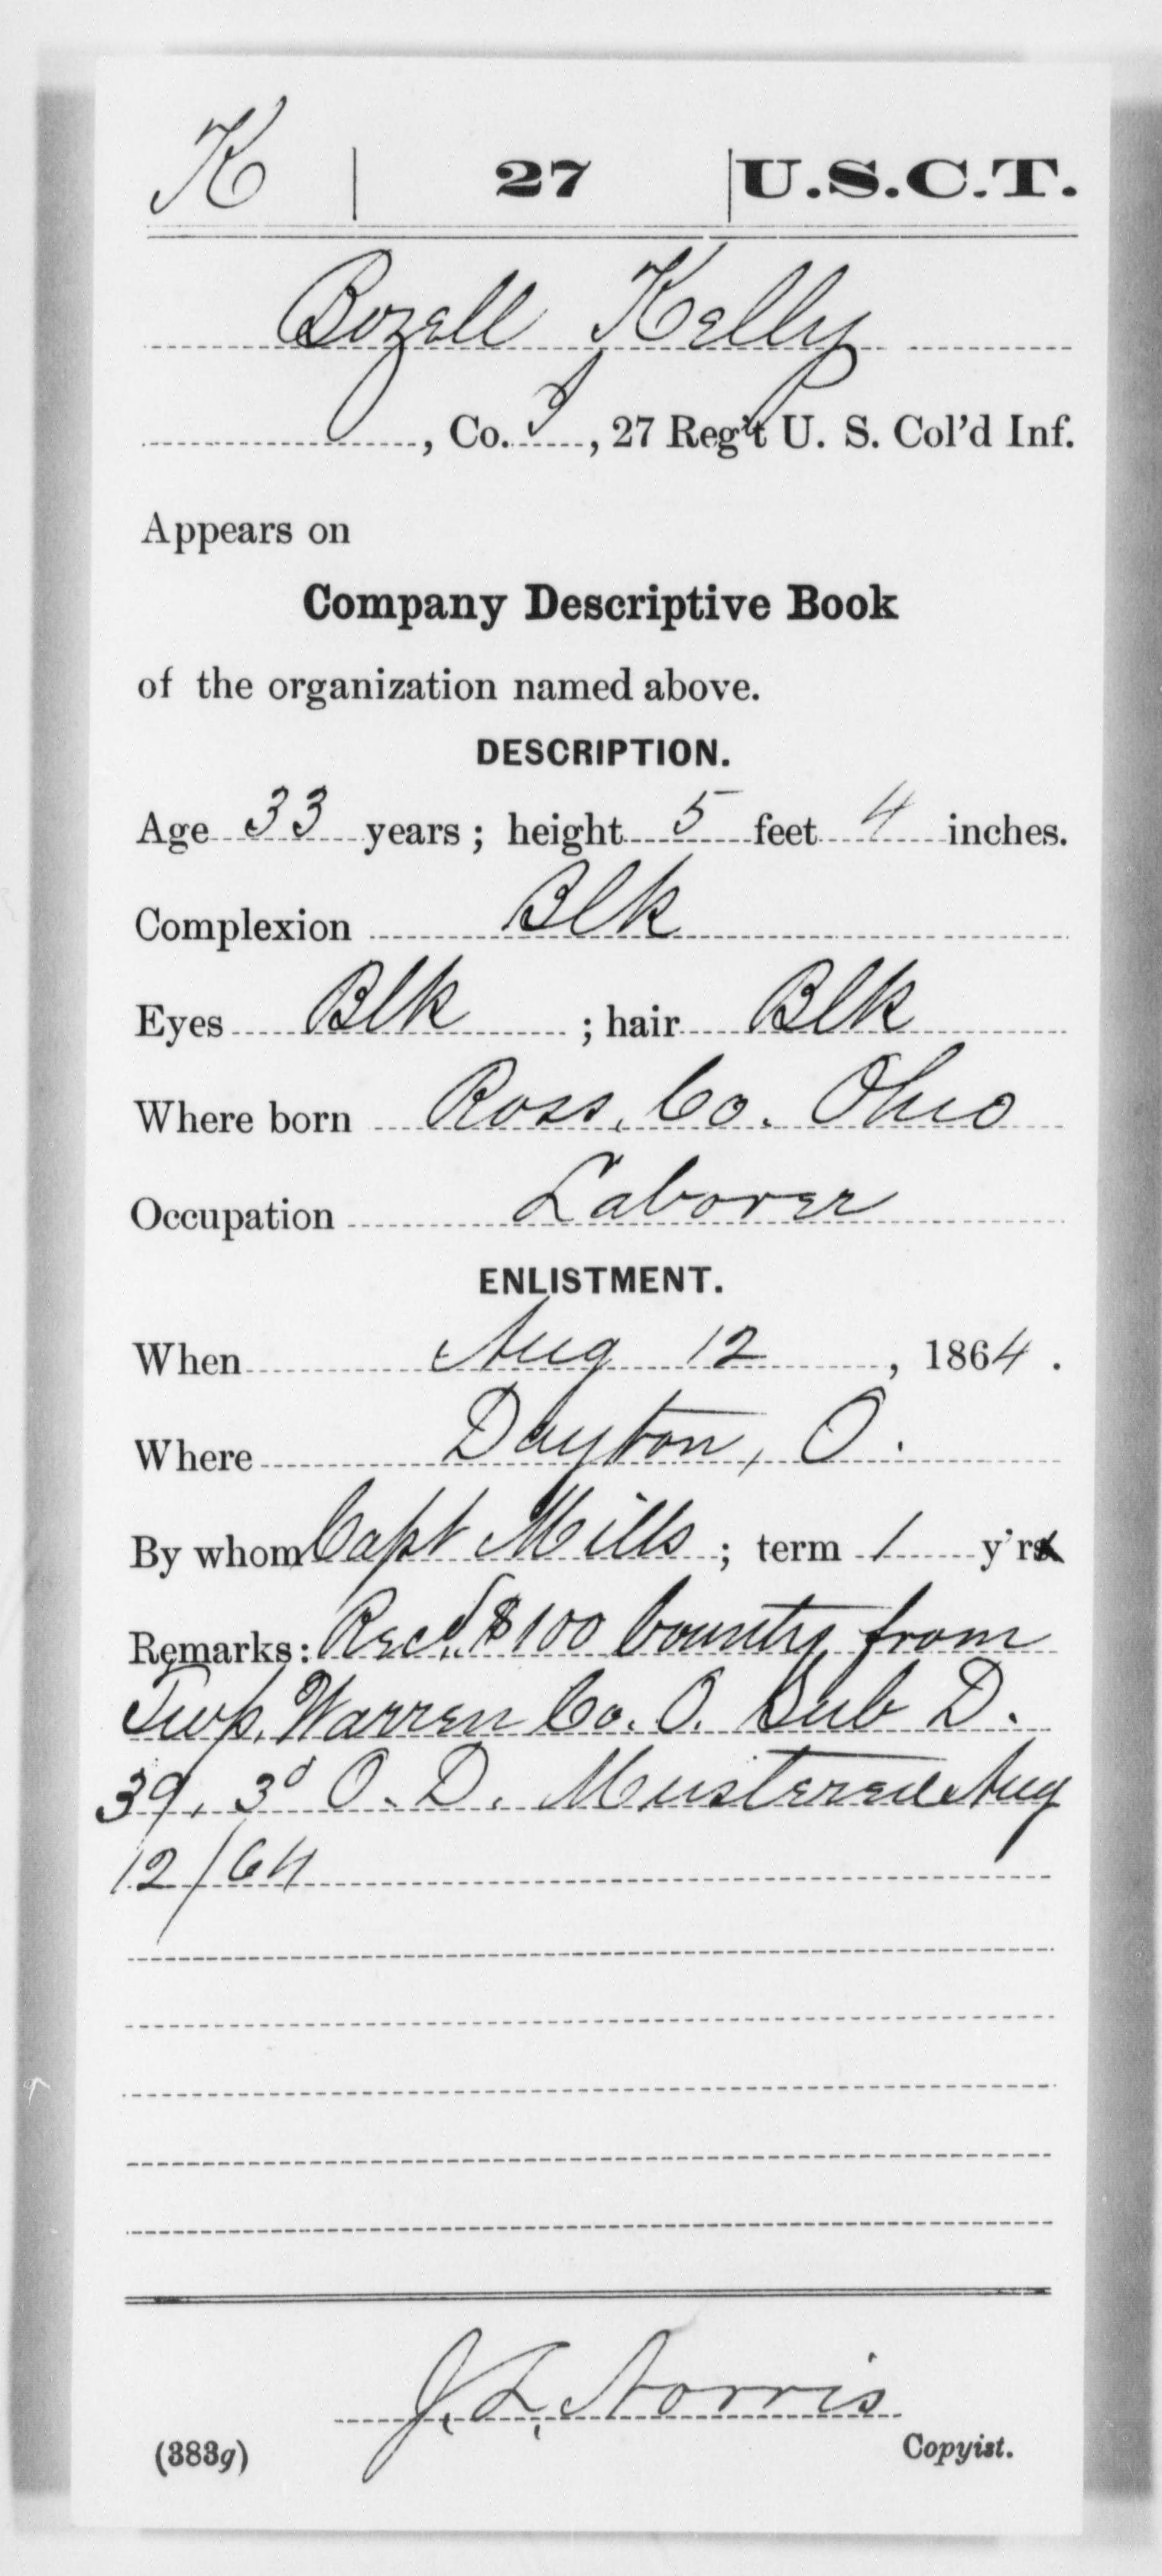 K | 27 | U.S.C.T.
Bozell Kelly
, Co. I, 27 Reg't U. S. Col'd Inf.
Appears on
Company Descriptive Book
of the organization named above.
DESCRIPTION.
Age 33 years; height 5 feet 4 inches.
Complexion Blk
Eyes Blk; hair Blk
Where born Ross, Co. Ohio
Occupation Laborer
ENLISTMENT.
When Aug 12, 1864.
Where Dayton, O.
By whom Capt Mills; term 1 y'rs
Remarks: Recd. $100 bounty from
Twp. Warren Co. O. Sub D.
39, 3d O. D. Mustered Aug
12/64
J. L. Norris
(383g) Copyist.